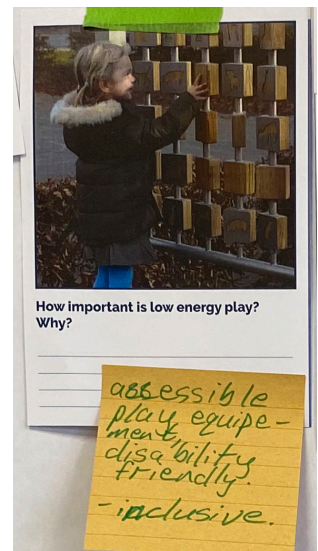 How important is low energy play?
Why?
assessible
play equipe-
ment,
disability
friendly.
- inclusive.